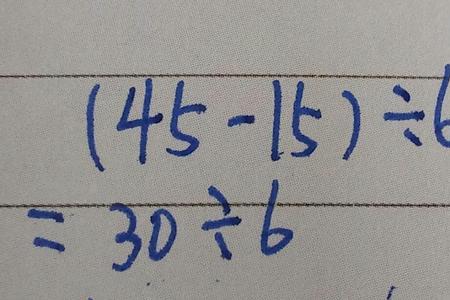 (45-15)÷6
=30÷6